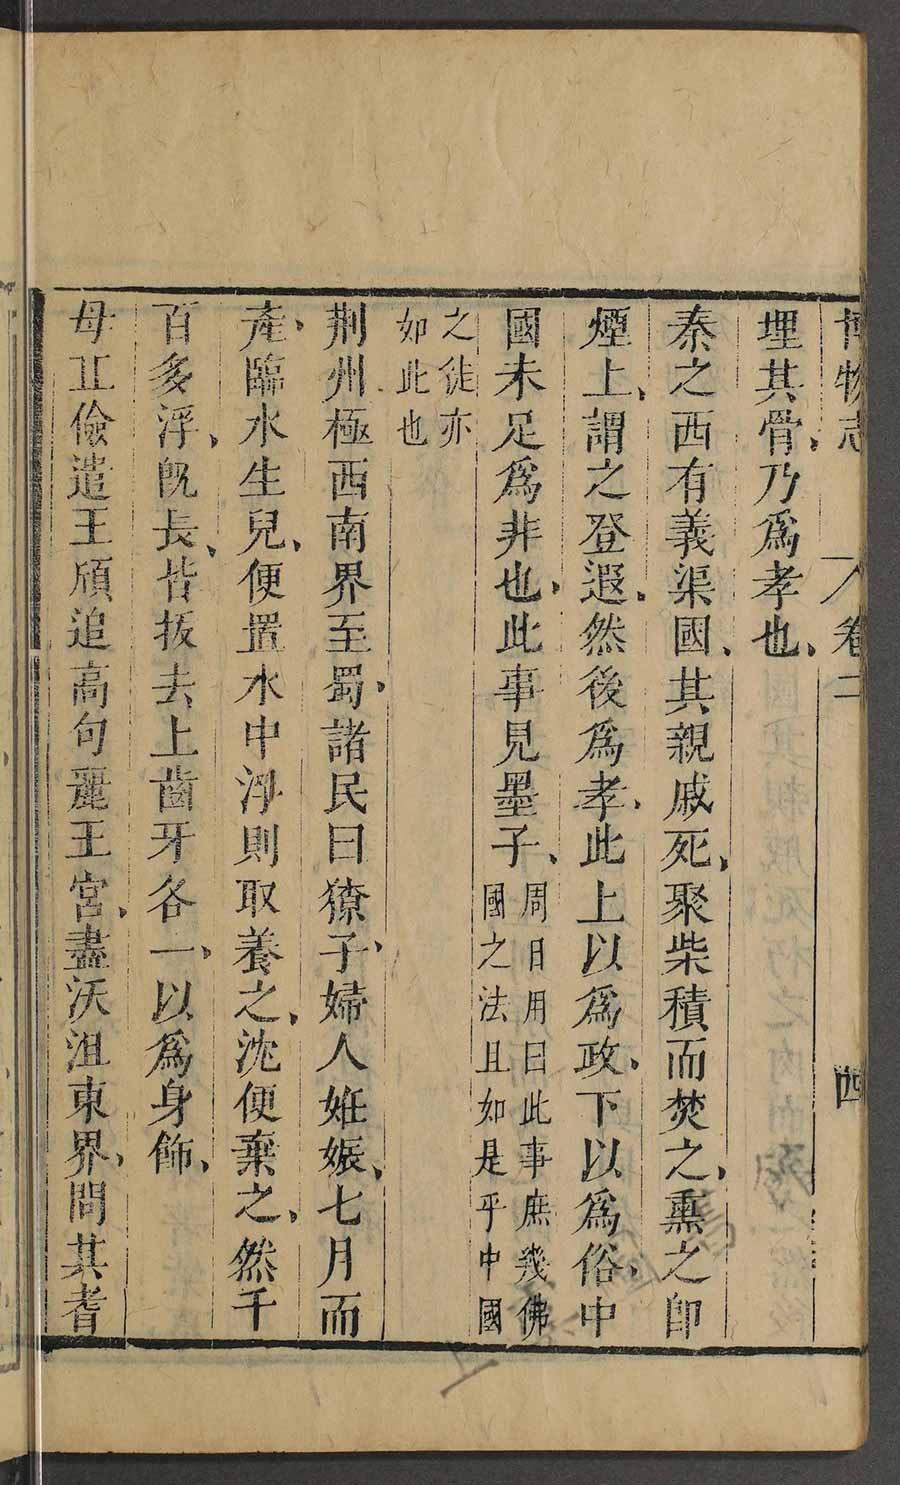 博物志 卷二 四
埋其骨、乃爲孝也、
秦之西有義渠國、其親戚死、聚柴積而焚之、熏之卽
煙上、謂之登遐、然後爲孝、此上以爲政、下以爲俗、中
國未足爲非也、此事見墨子、
周日用曰此事庶幾佛
國之法且如是乎中國
之徒亦
如此也
荆州極西南界至蜀、諸民曰獠子、婦人姙娠、七月而
產、臨水生兒、便置水中浮則取養之、沈便棄之、然千
百多浮、旣長、皆拔去上齒牙各一、以爲身飾、
毋丘儉遣王頎追高句麗王宮、盡沃沮東界、問其耆